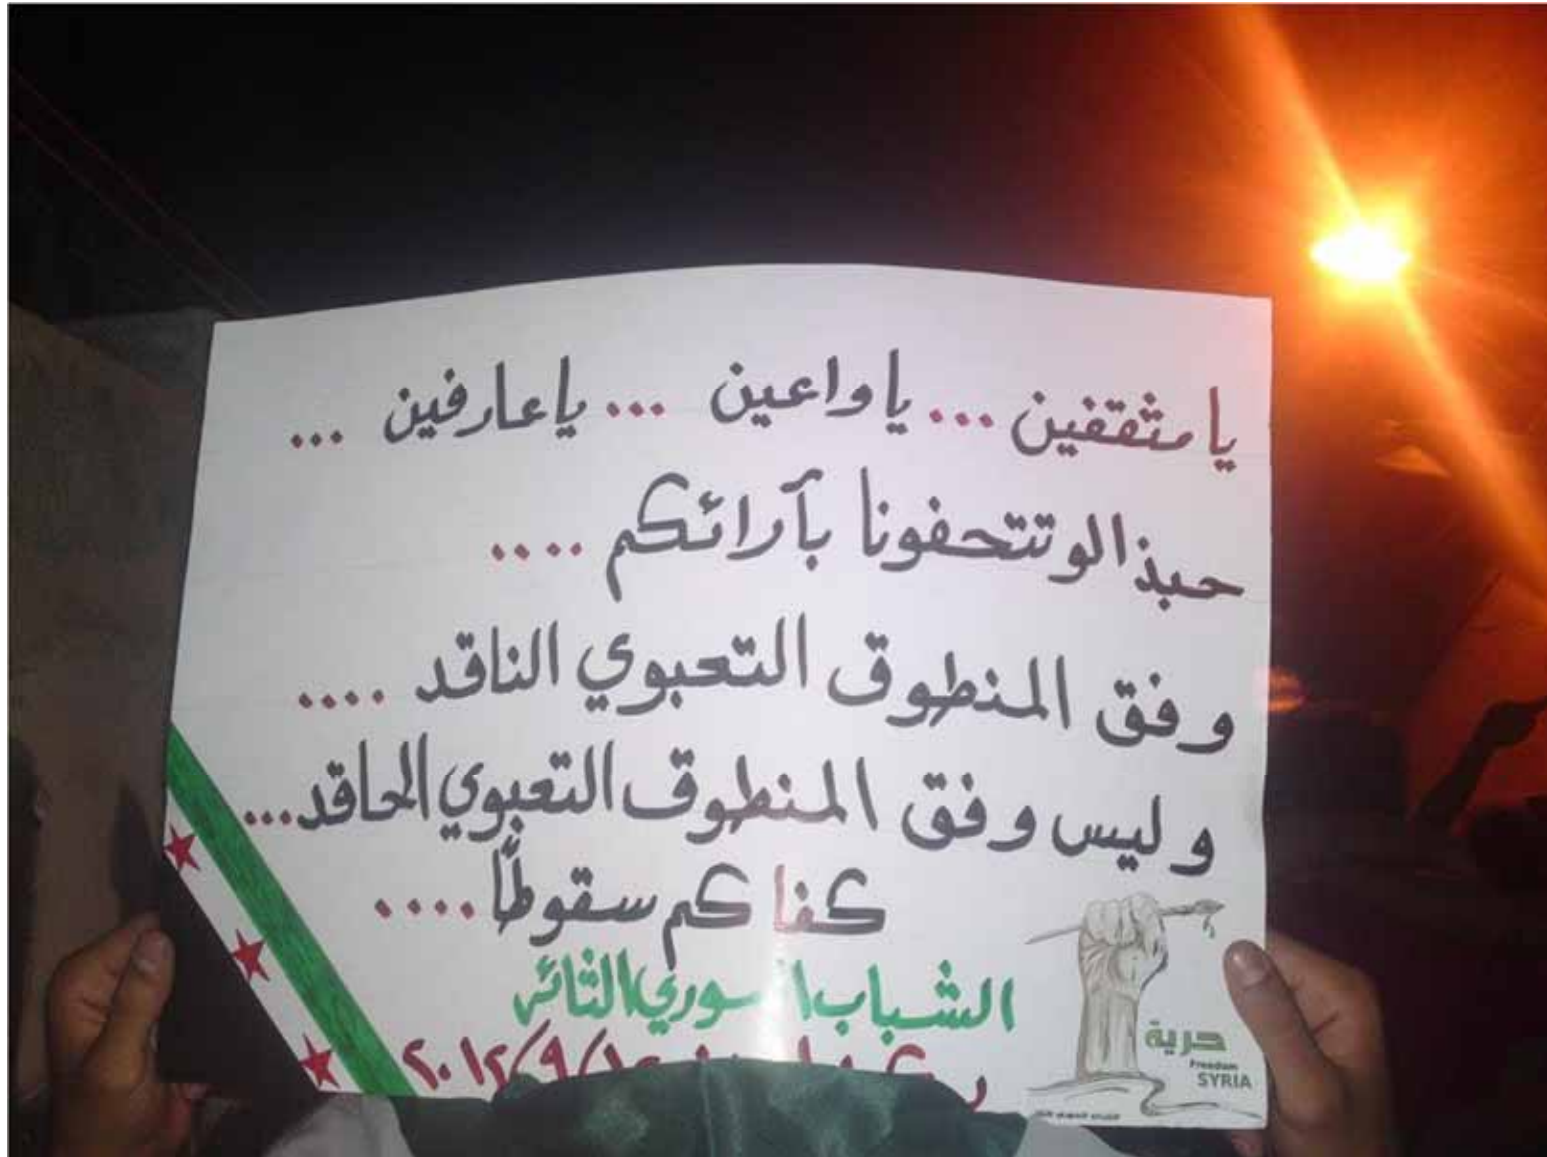 يا مثقفين ... يا واعين ... يا عارفين ...
حبذا لو تتحفونا بآرائكم ....
وفق المنطوق التعبوي الناقد ....
وليس وفق المنطوق التعبوي الحاقد...
كفاكم سقوطاً ....
الشباب السوري الثائر
٢٠١٢/٩/
حرية
Freedom
SYRIA